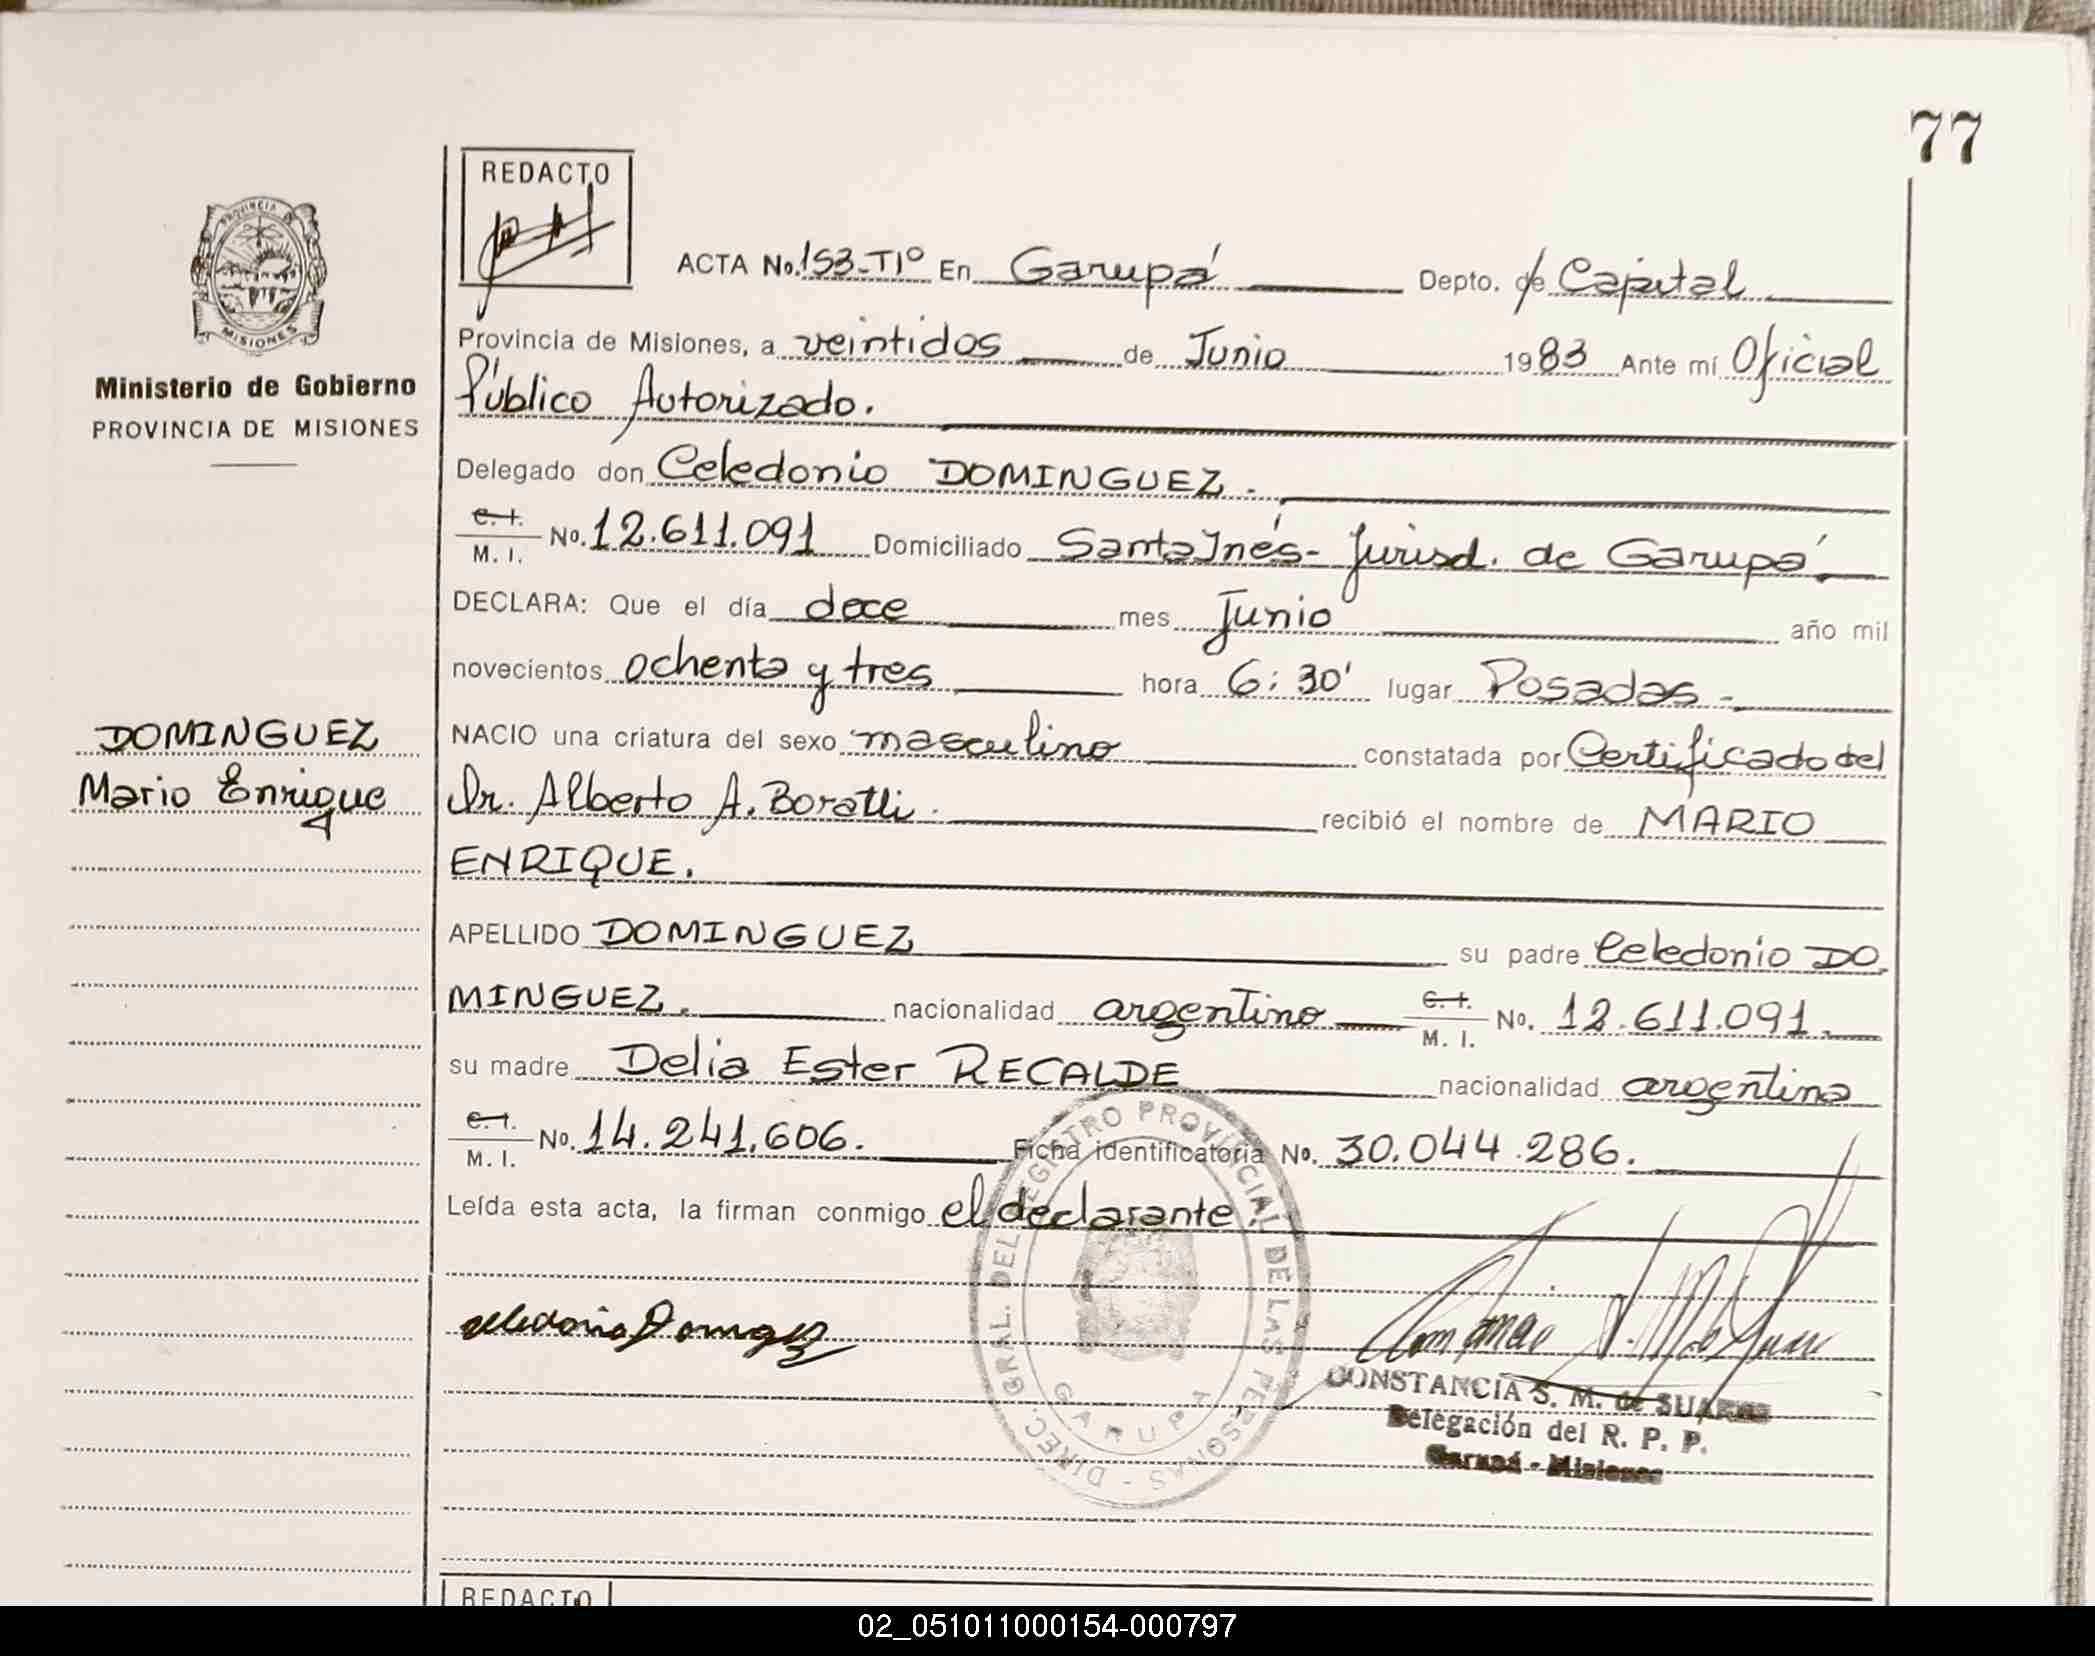 77
REDACTO
PROVINCIA DE
MISIONES
Ministerio de Gobierno
PROVINCIA DE MISIONES
DOMINGUEZ
Mario Enrique
ACTA No. 153-TIº En Garupá Depto. de Capital
Provincia de Misiones, a veintidos de Junio 1983 Ante mí Oficial
Público Autorizado.
Delegado don Celedonio DOMINGUEZ.
C. I. M. I. No. 12.611.091 Domiciliado Santa Inés- Jurisd. de Garupá
DECLARA: Que el día doce mes Junio año mil
novecientos ochenta y tres hora 6:30' lugar Posadas-
NACIO una criatura del sexo masculino constatada por Certificado del
Dr. Alberto A. Boratti. recibió el nombre de MARIO
ENRIQUE.
APELLIDO DOMINGUEZ su padre Celedonio DO
MINGUEZ. nacionalidad argentino C. I. M. I. No. 12.611.091.
su madre Delia Ester RECALDE nacionalidad argentina
C. I. M. I. No. 14.241.606. Ficha identificatoria No. 30.044.286.
Leída esta acta, la firman conmigo el declarante.
DIREC. GRAL. DEL REGISTRO PROVINCIAL DE LAS PERSONAS -
GARUPA
CONSTANCIA S. M. de SUAREZ
Delegación del R. P. P.
Garupá - Misiones
REDACTO
02_051011000154-000797